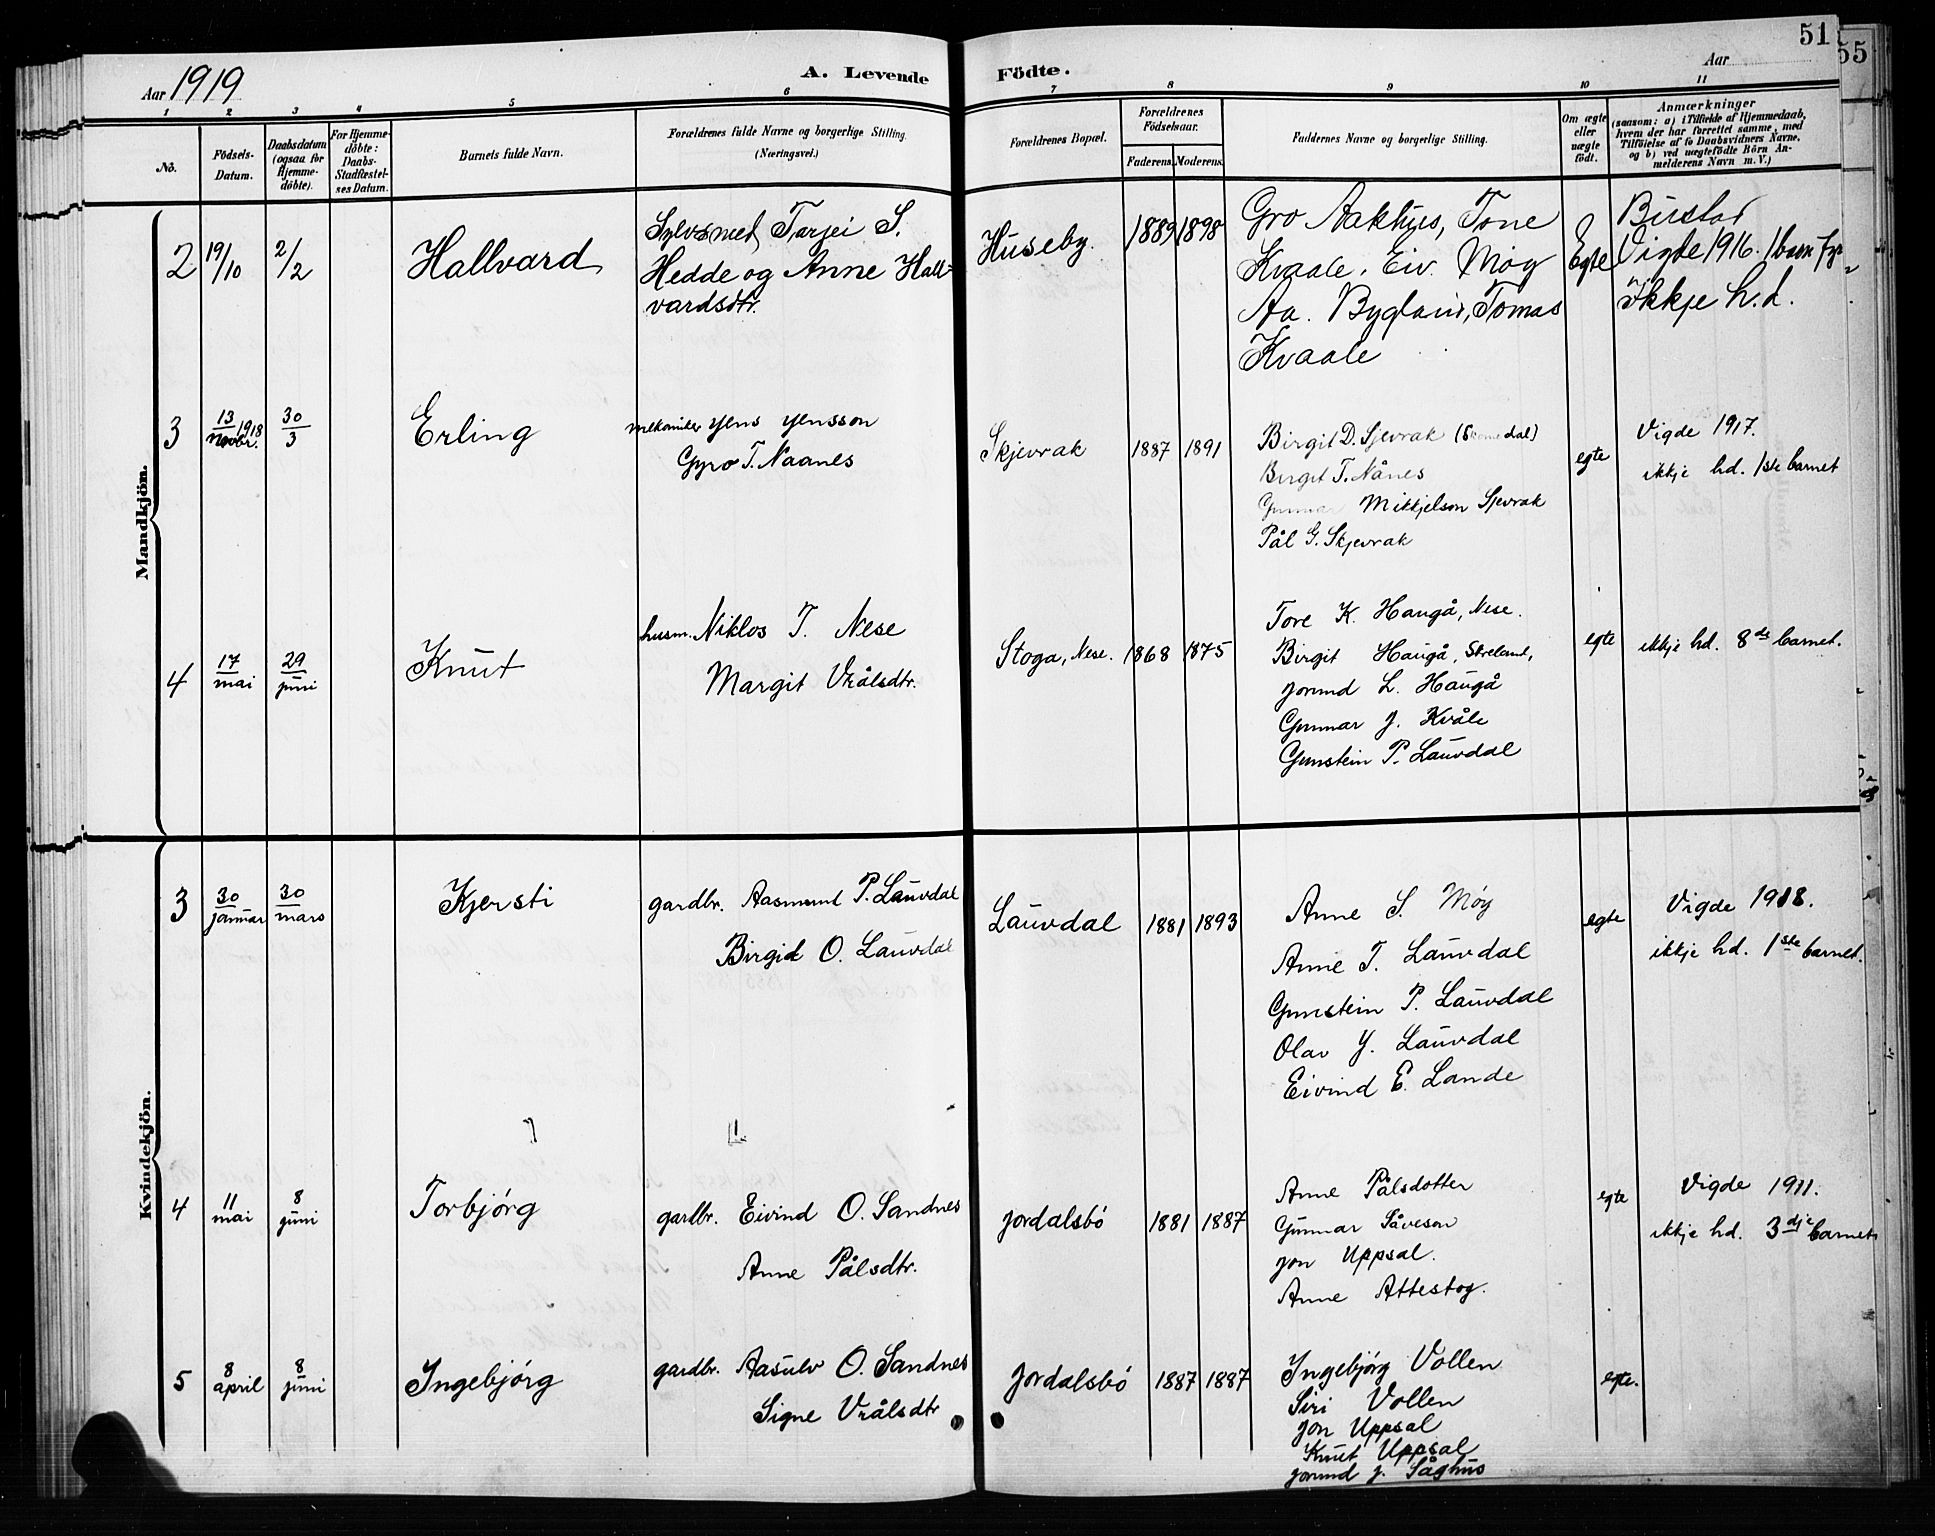 51
55
Aar 1919
A. Levende Födte.
Aar
1 2 3 4 5 6 7 8 9 10 11
No.
Födsels-
Datum.
Daabsdatum
(ogsaa for
Hjemme-
döbte).
For Hjemme-
döbte:
Daabs-
Stadfæstel-
ses Datum.
Barnets fulde Navn.
Forældrenes fulde Navne og borgerlige Stilling.
(Næringsvei.)
Forældrenes Bopæl.
Forældrenes
Födselsaar.
Faderens. Moderens.
Faddernes Navne og borgerlige Stilling.
Om ægte
eller
uægte
födt.
Anmærkninger
(saasom: a) i Tilfælde af Hjemmedaab,
hvem der har forrettet samme, med
Tilföielse af to Daabsvidners Navne,
og b) ved uægtefödte Börn An-
melderens Navn m. V.)
Mandkjön.
2 19/10 2/2 Hallvard
Sylvsmed Tarjei S.
Hedde og Anne Hall-
vardsdtr.
Huseby. 1889 1898
Gro Aakhus, Tone
Kvaale, Eiv. Møy
Aa. Bygland, Tomas
Kvaale
Egte
Bustad
Vigde 1916. 1 barn fyr
ikkje h.d.
3 13/novbr. 1918 30/3 Erling
mekaniker Jens Jensson
Gyro T. Naanes
Skjevrak 1887 1891
Birgit D. Sjevrak (Skomedal)
Birgit T. Nånes
Gunnar Mikkjelson Sjevrak
Pål G. Skjevrak
egte
Vigde 1917.
ikkje hd. 1ste barnet
4 17/mai 29/juni Knut
husm. Niklos T. Nese
Margit Vrålsdtr.
Stoga, Nese. 1868 1875
Tore K. Haugå, Nese.
Birgit Haugå, Skreland,
Jorund L. Haugå
Gunnar J. Kvåle
Gunstein P. Lauvdal
egte
ikkje hd. 8de barnet.
Kvindekjön.
3 30/januar 30/mars Kjersti
gardbr. Aasmund P. Lauvdal
Birgid O. Lauvdal
Lauvdal 1881 1893
Anne S. Møy
Anne T. Lauvdal
Gunstein P. Lauvdal
Olav Y. Lauvdal
Eivind E. Lande
egte
Vigde 1918.
ikkje hd. 1ste barnet.
4 11/mai 8/juni Torbjørg
gardbr. Eivind O. Sandnes
Anne Pålsdtr.
Jordalsbø 1881 1887
Anne Pålsdotter
Gunnar Såveson
Jon Uppsal.
Anne Attestog.
egte
Vigde 1911.
ikkje hd. 3dje barnet
5 8/april 8/juni Ingebjørg
gardbr. Aasulv O. Sandnes
Signe Vrålsdtr
Jordalsbø 1887 1887
Ingebjørg Vollen
Siri Vollen
Jon Uppsal
Knut Uppsal
Jorund J. Såghus
egte.